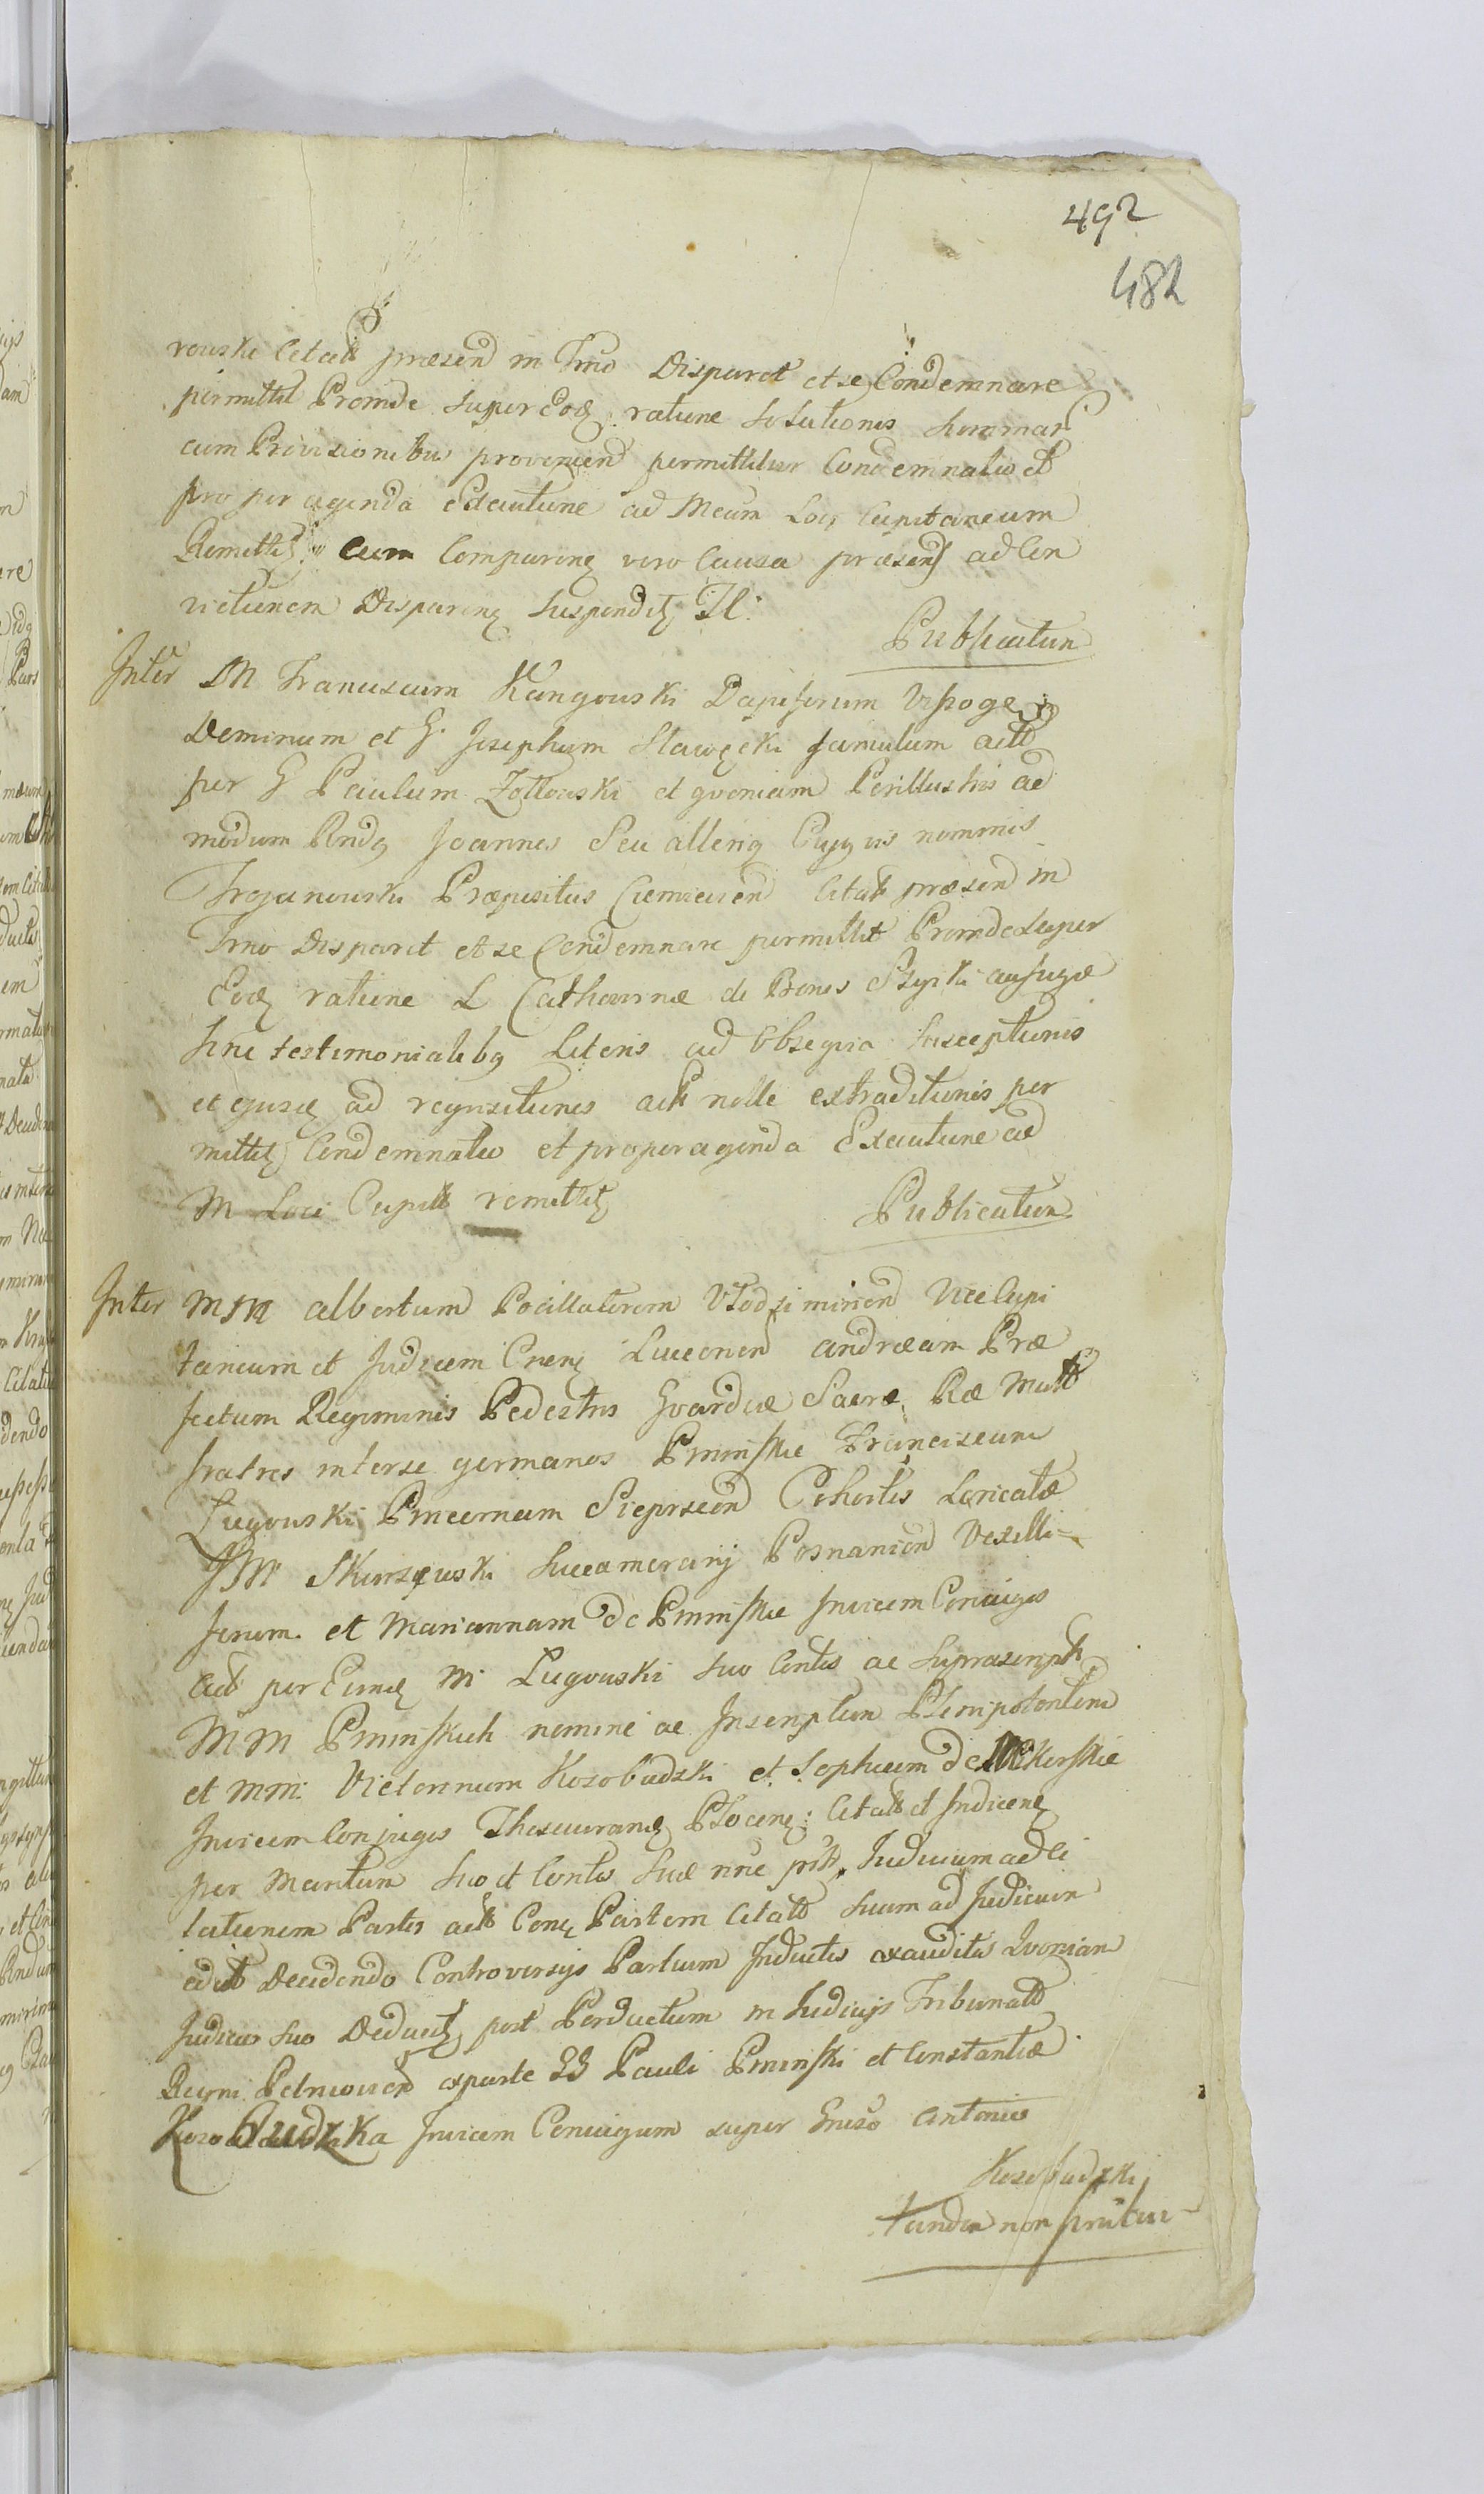 492
482
rowski Citatt præsen in Trno Disparet et se Condemnare
permittit Proinde super Eodem ratione Solutionis Summar
cum Provisionibus provenien permittitur Condemnatio et
pro peragenda Executione ad Meum Loci Capitaneum
Remittit cum Comparen vero Causa præsens ad Con
victionem Disparen Suspendit Tl:
Publicatum
Inter M Franciscum Kangowski Dapiferum Vissoge
Dominum et G. Josephum Slawęcki famulum actt
per G Paulum Zołtowski et quoniam Perillustris ad
modum Rndg Joannes Seu alterig Cujqvis nominis
Trojanowski Præpositus Ciemiewen Citatt præsen in
Trno Disparet et se Condemnare permittit Proinde Super
Eod ratione L Catharinæ de Bonis Szyski aufugæ
sine testimonialibg Literis ad Obseqvia Susceptionis
et ejusd ad reqvisitionis actt nolle extraditionis per
mittit Condemnatio et pro peragenda Executione ad
M Loci Capitt remittit
Publicatum
Inter MM Albertum Pocillatorem Włodzimirien Vice Capi
taneum et Judicem Livonen Andræam Præ
fectum Regiminis Pedestris Gvardiæ Sacræ Ræ Mtt
fratres inter se germanos Pminskie Franciscum
Ługowski Pincernam Sieprscen Cohortis Loricatæ
JM Skurzewski Succamerarij Posnanien Vexilli=
ferum et Mariannam de Pminskie Invicem Conjuges
actt per Eund M Ługowski suo Contis ac Suprascriptt
MM Pminskich nomine ac Inscriptum Plenipotentem
et MM: Victorinum Kosobudzki et Sophiam de
Invicem Conjuges Thesaurarid Plocen: Citatt et Indicen
per Maritum Suo et Contis Suæ nne Judicium ad Ci
tationem Partis actt Partem Citatt Suum ad Judicium
Decidendo Controversijs Partium Inductis exauditis Qvoniam
Judicio Suo post Perductum in Judicijs Tribunatt
Regni Petricovien ex parte GG Pauli Pminski et Constantiæ
Kosobudzka Invicem Conjugum super Antonio
Kosobudzki